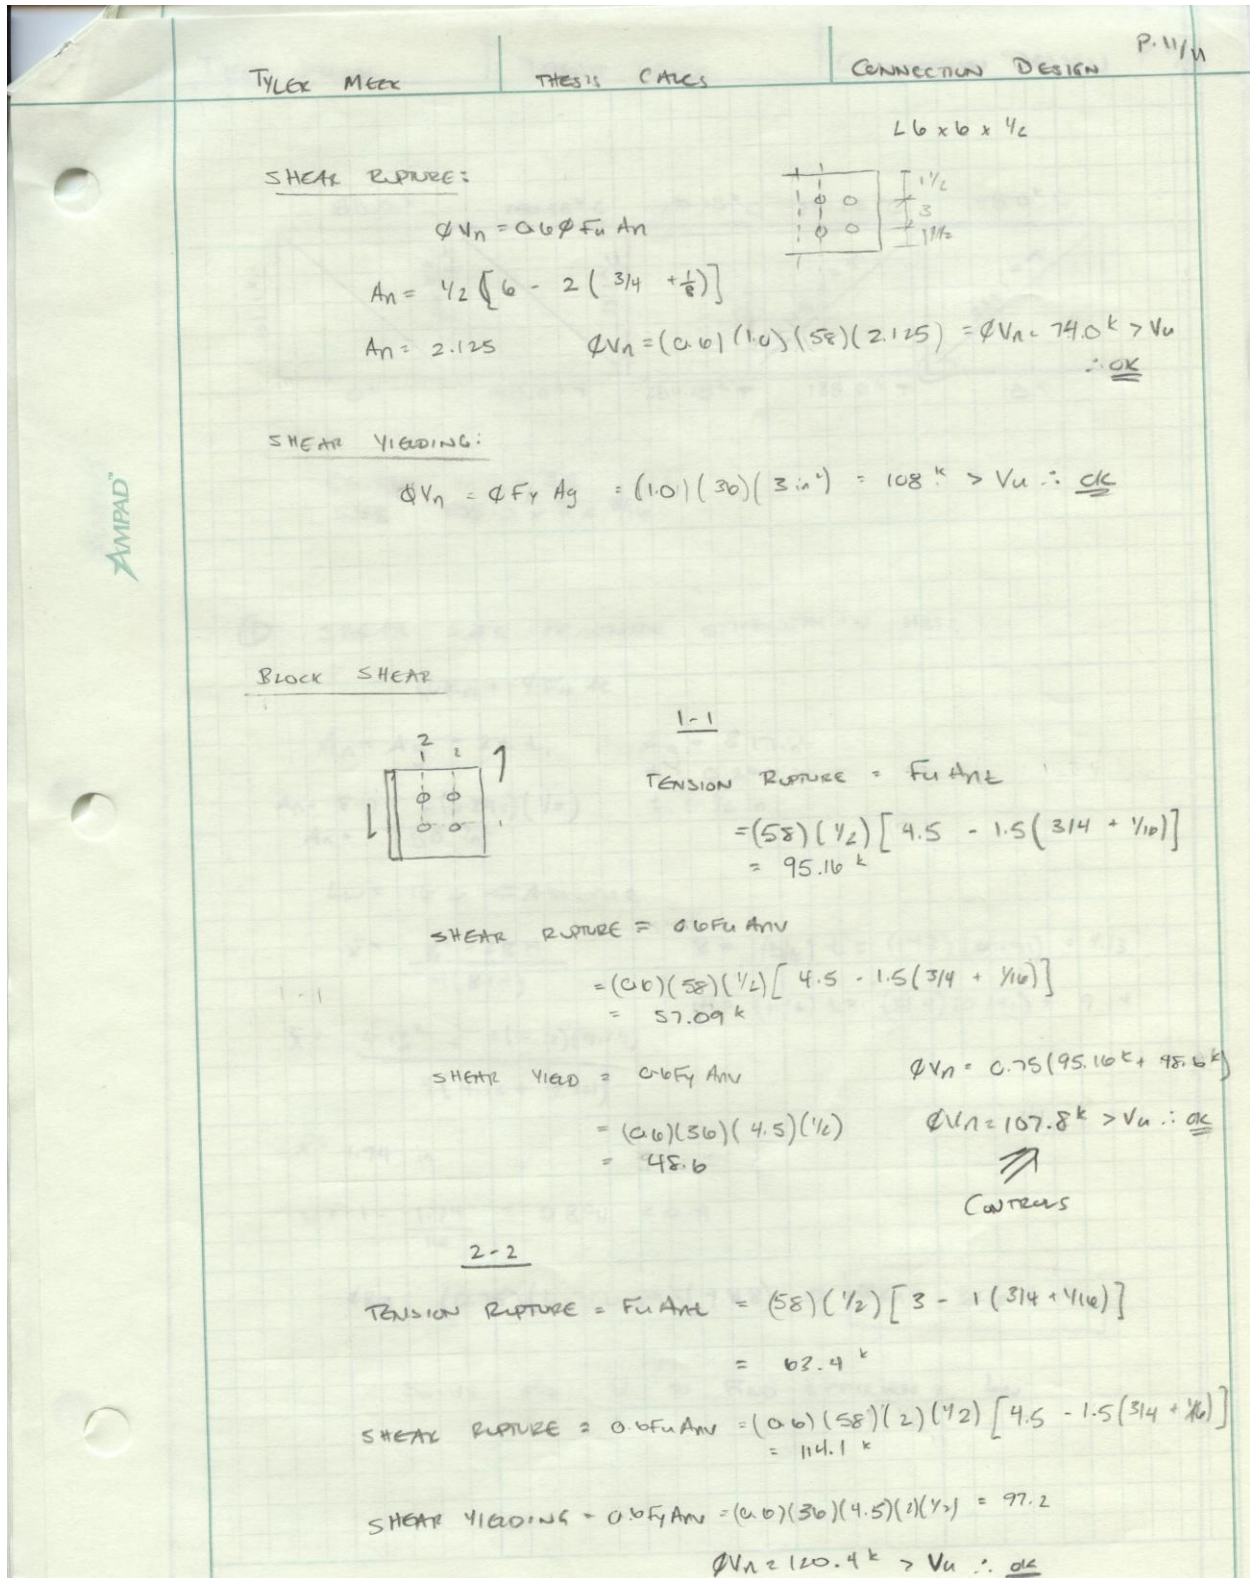 P. 11/11
TYLER MEEK THESIS CALCS CONNECTION DESIGN
L6 x 6 x 1/2
SHEAR RUPTURE:
1 1/2
3
1 1/2
φVn = 0.6φ Fu An
An = 1/2 [6 - 2 ( 3/4 + 1/8)]
An = 2.125 φVn = (0.6) (1.0) (58) (2.125) = φVn = 74.0 k > Vu
∴ OK
SHEAR YIELDING:
φVn = φ Fy Ag = (1.0) (36) (3 in²) = 108 k > Vu ∴ OK
AMPAD™
BLOCK SHEAR
1-1
2 2
1 1
TENSION RUPTURE = Fu Ant
= (58) (1/2) [4.5 - 1.5 ( 3/4 + 1/16)]
= 95.16 k
SHEAR RUPTURE = 0.6 Fu Anv
= (0.6) (58) (1/2) [ 4.5 - 1.5 (3/4 + 1/16)]
= 57.09 k
SHEAR YIELD = 0.6Fy Anv φVn = 0.75 (95.16 k + 48.6 k)
= (0.6) (36) ( 4.5) (1/2) φVn = 107.8 k > Vu ∴ OK
= 48.6
CONTROLS
2-2
TENSION RUPTURE = Fu Ant = (58) (1/2) [3 - 1 (3/4 + 1/16)]
= 63.4 k
SHEAR RUPTURE = 0.6Fu Anv = (0.6) (58) (2) (1/2) [4.5 - 1.5 (3/4 + 1/16)]
= 114.1 k
SHEAR YIELDING = 0.6Fy Anv = (0.6) (36) (4.5) (2) (1/2) = 97.2
φVn = 120.4 k > Vu ∴ OK